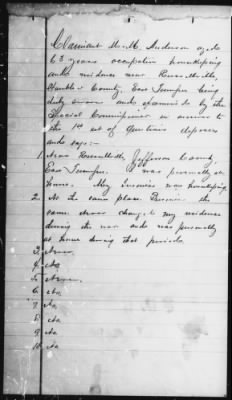 Claimant M. M. Anderson aged
63 years occupation housekeeping
and residence near Russellville,
Hamblen County, East Tennessee being
duly sworn and examined by the
Special Commissioner in answer to
the 1st set of Questions deposes
and says:—
1. Near Russellville, Jefferson County,
East Tennessee. I was personally at
home. My business was housekeeping
2. At the same place. Resided the
same. Never changed my residence
during the war and was personally
at home during that period.
3. Never.
4. No
5. Never.
6. No.
7. No
8. No
9. No
10. No